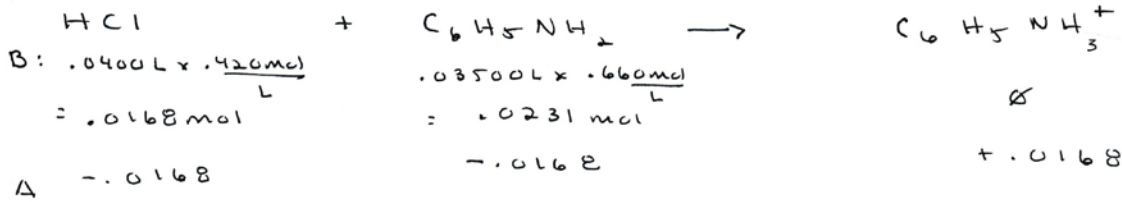 HCl + C6H5NH2 → C6H5NH3+
B: .0400L x .420mol/L .03500L x .660mol/L ø
= .0168mol = .0231 mol
Δ -.0168 -.0168 +.0168